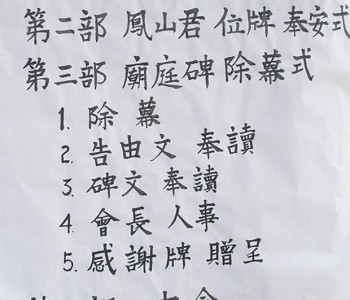 第二部 鳳山君 位牌 奉安式
第三部 廟庭碑 除幕式
1. 除 幕
2. 告由文 奉讀
3. 碑文 奉讀
4. 會長 人事
5. 感謝牌 贈呈